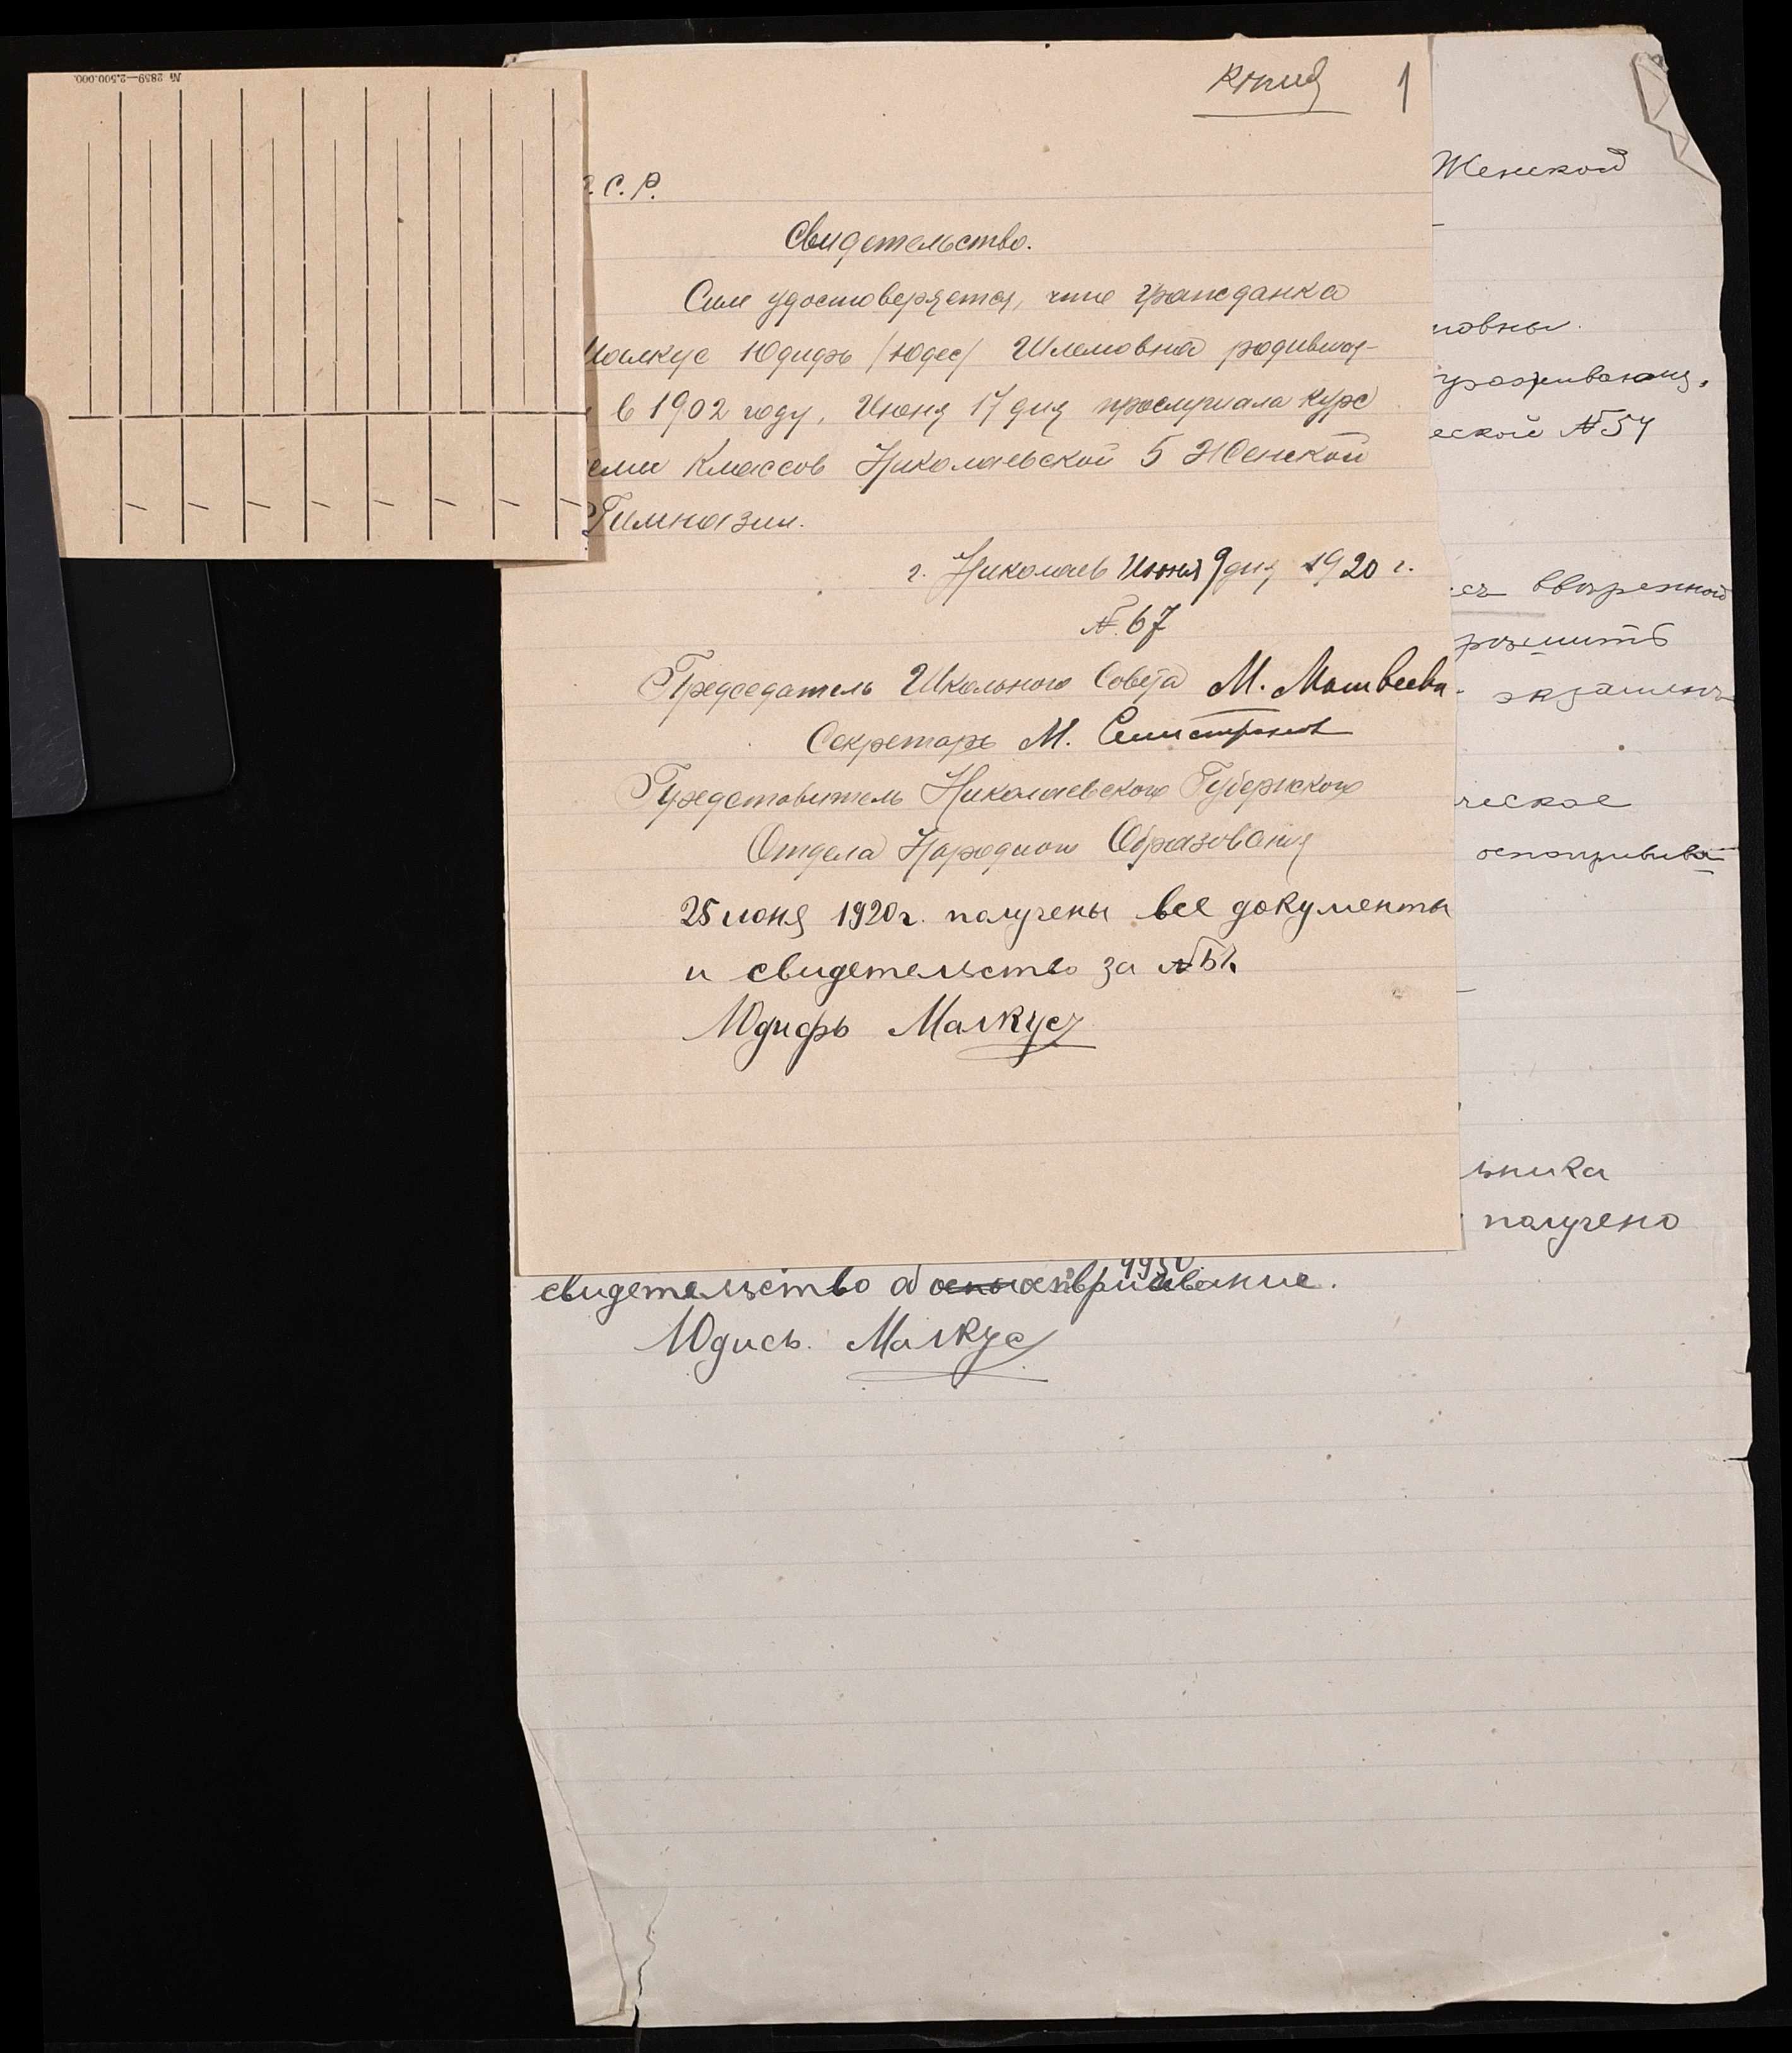 № 2859—2.500.000.
Копия 1
.С.Р.
Свидетельство.
Сим удостоверяется, что гражданка
Малкус Юдифь /Юдес/ Шлемовна родившая-
в 1902 году, Июня 17 дня прослушала курс
семи Классов Николаевской 5 Женской
Гимназии.
г. Николаев Июня 9 дня 1920 г.
№ 67
Председатель Школьного Совета М. Матвеева
Секретарь М.
Представитель Николаевского Губернского
Отдела Народного Образования
25 июня 1920 г. получены все документы
и свидетельство за №
Юдифь Малкус
Женской
мовны.
еской № 54
вверенной
экзамены
ческое
оспопрививa
ьника
получено
свидетельство
Юдись. Малкус